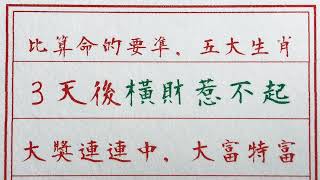 比算命的要準，五大生肖
3天後橫財惹不起
大獎連連中，大富特富